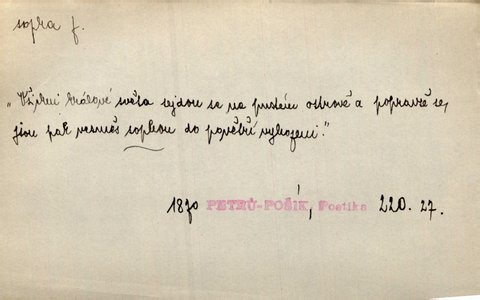 sopka f.
„Všickni králové světa sejdou se na pustém ostrově a popravše se,
jsou pak vesměs sopkou do povětří vyhozeni."
1870 PETRŮ-POŠÍK, Poetika 220. 27.